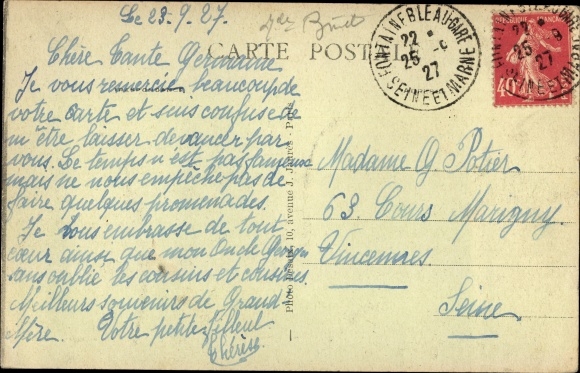 Le 23-9.27.
CARTE POSTALE
Chère Tante Germaine
Je vous remercie beaucoup de
votre carte et suis confuse de
m'être laisser devancer par
vous. Le temps n'est pas fameux
mais ne nous empêche pas de
faire quelques promenades.
Je vous embrasse de tout
cœur ainsi que mon Oncle Georges
sans oublié les cousins et cousines
Meilleurs souvenirs de Grand
Mère. Votre petite filleul
Thérèse
Photo Desaix, 10, avenue J. Jaurès - Paris
Madame G. Potier
63. Cours Marigny
Vincennes
Seine
FONTAINEBLEAU-GARE
22
25 - 9
27
SEINE ET MARNE
40